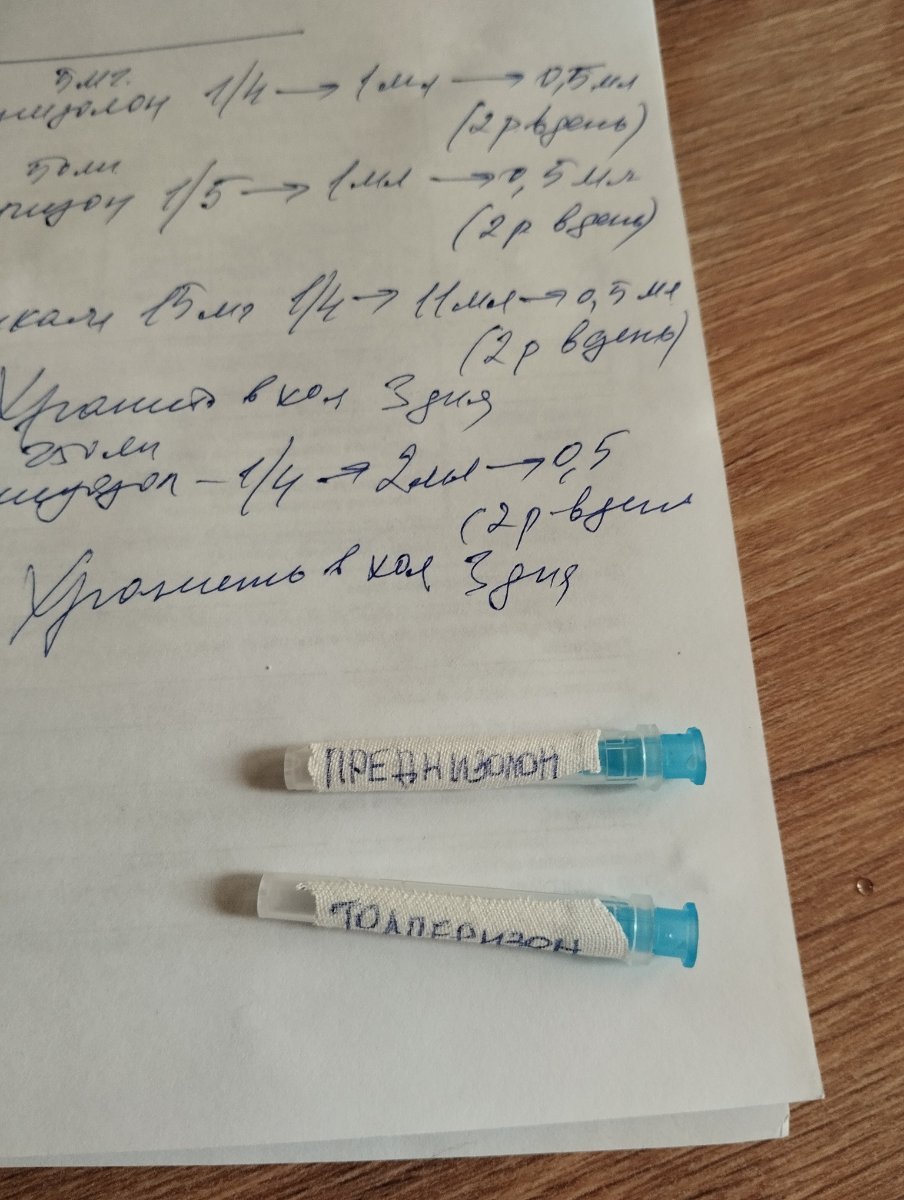 5мг.
низолон 1/4 → 1мл → 0,5мл
(2 р в день)
50мг
ризон 1/5 → 1мл → 0,5мл
(2 р в день)
15мг 1/4 → 11мл → 0,5мл
(2 р в день)
Хранить в хол 3 дня
250мг
1/4 → 2мл → 0,5
(2 р в день
Хранить в хол 3 дня
ПРЕДНИЗОЛОН
ТОЛПЕРИЗОН